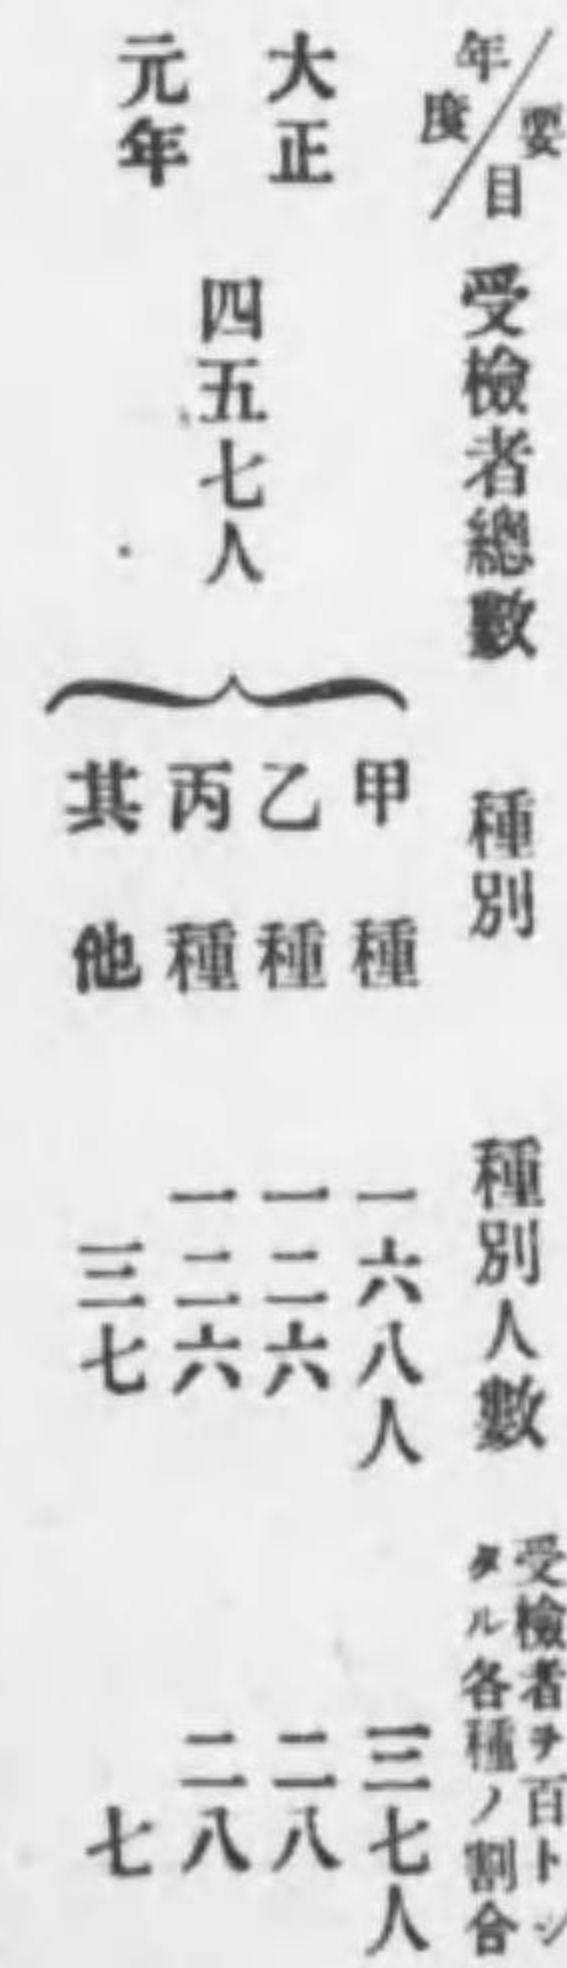 要目／年度　受檢者總數　種別　種別人數　受檢者ヲ百トシタル各種ノ割合
大正元年　四五七人
甲種　一六八人　三七人
乙種　一二六　二八
丙種　一二六　二八
其他　三七　七